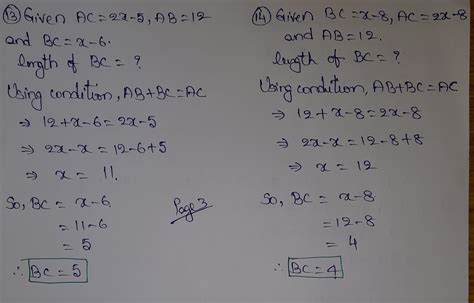 (13) Given AC = 2x-5, AB = 12
and BC = x-6.
length of BC = ?
Using condition, AB+BC=AC
⇒ 12+x-6 = 2x-5
⇒ 2x-x = 12-6+5
⇒ x = 11.
So, BC = x-6
= 11-6
= 5
∴ BC = 5
Page 3
(14) Given BC = x-8, AC = 2x-8
and AB = 12.
length of BC = ?
Using condition, AB+BC = AC
⇒ 12+x-8 = 2x-8
⇒ 2x-x = 12-8+8
⇒ x = 12
So, BC = x-8
= 12-8
= 4
∴ BC = 4